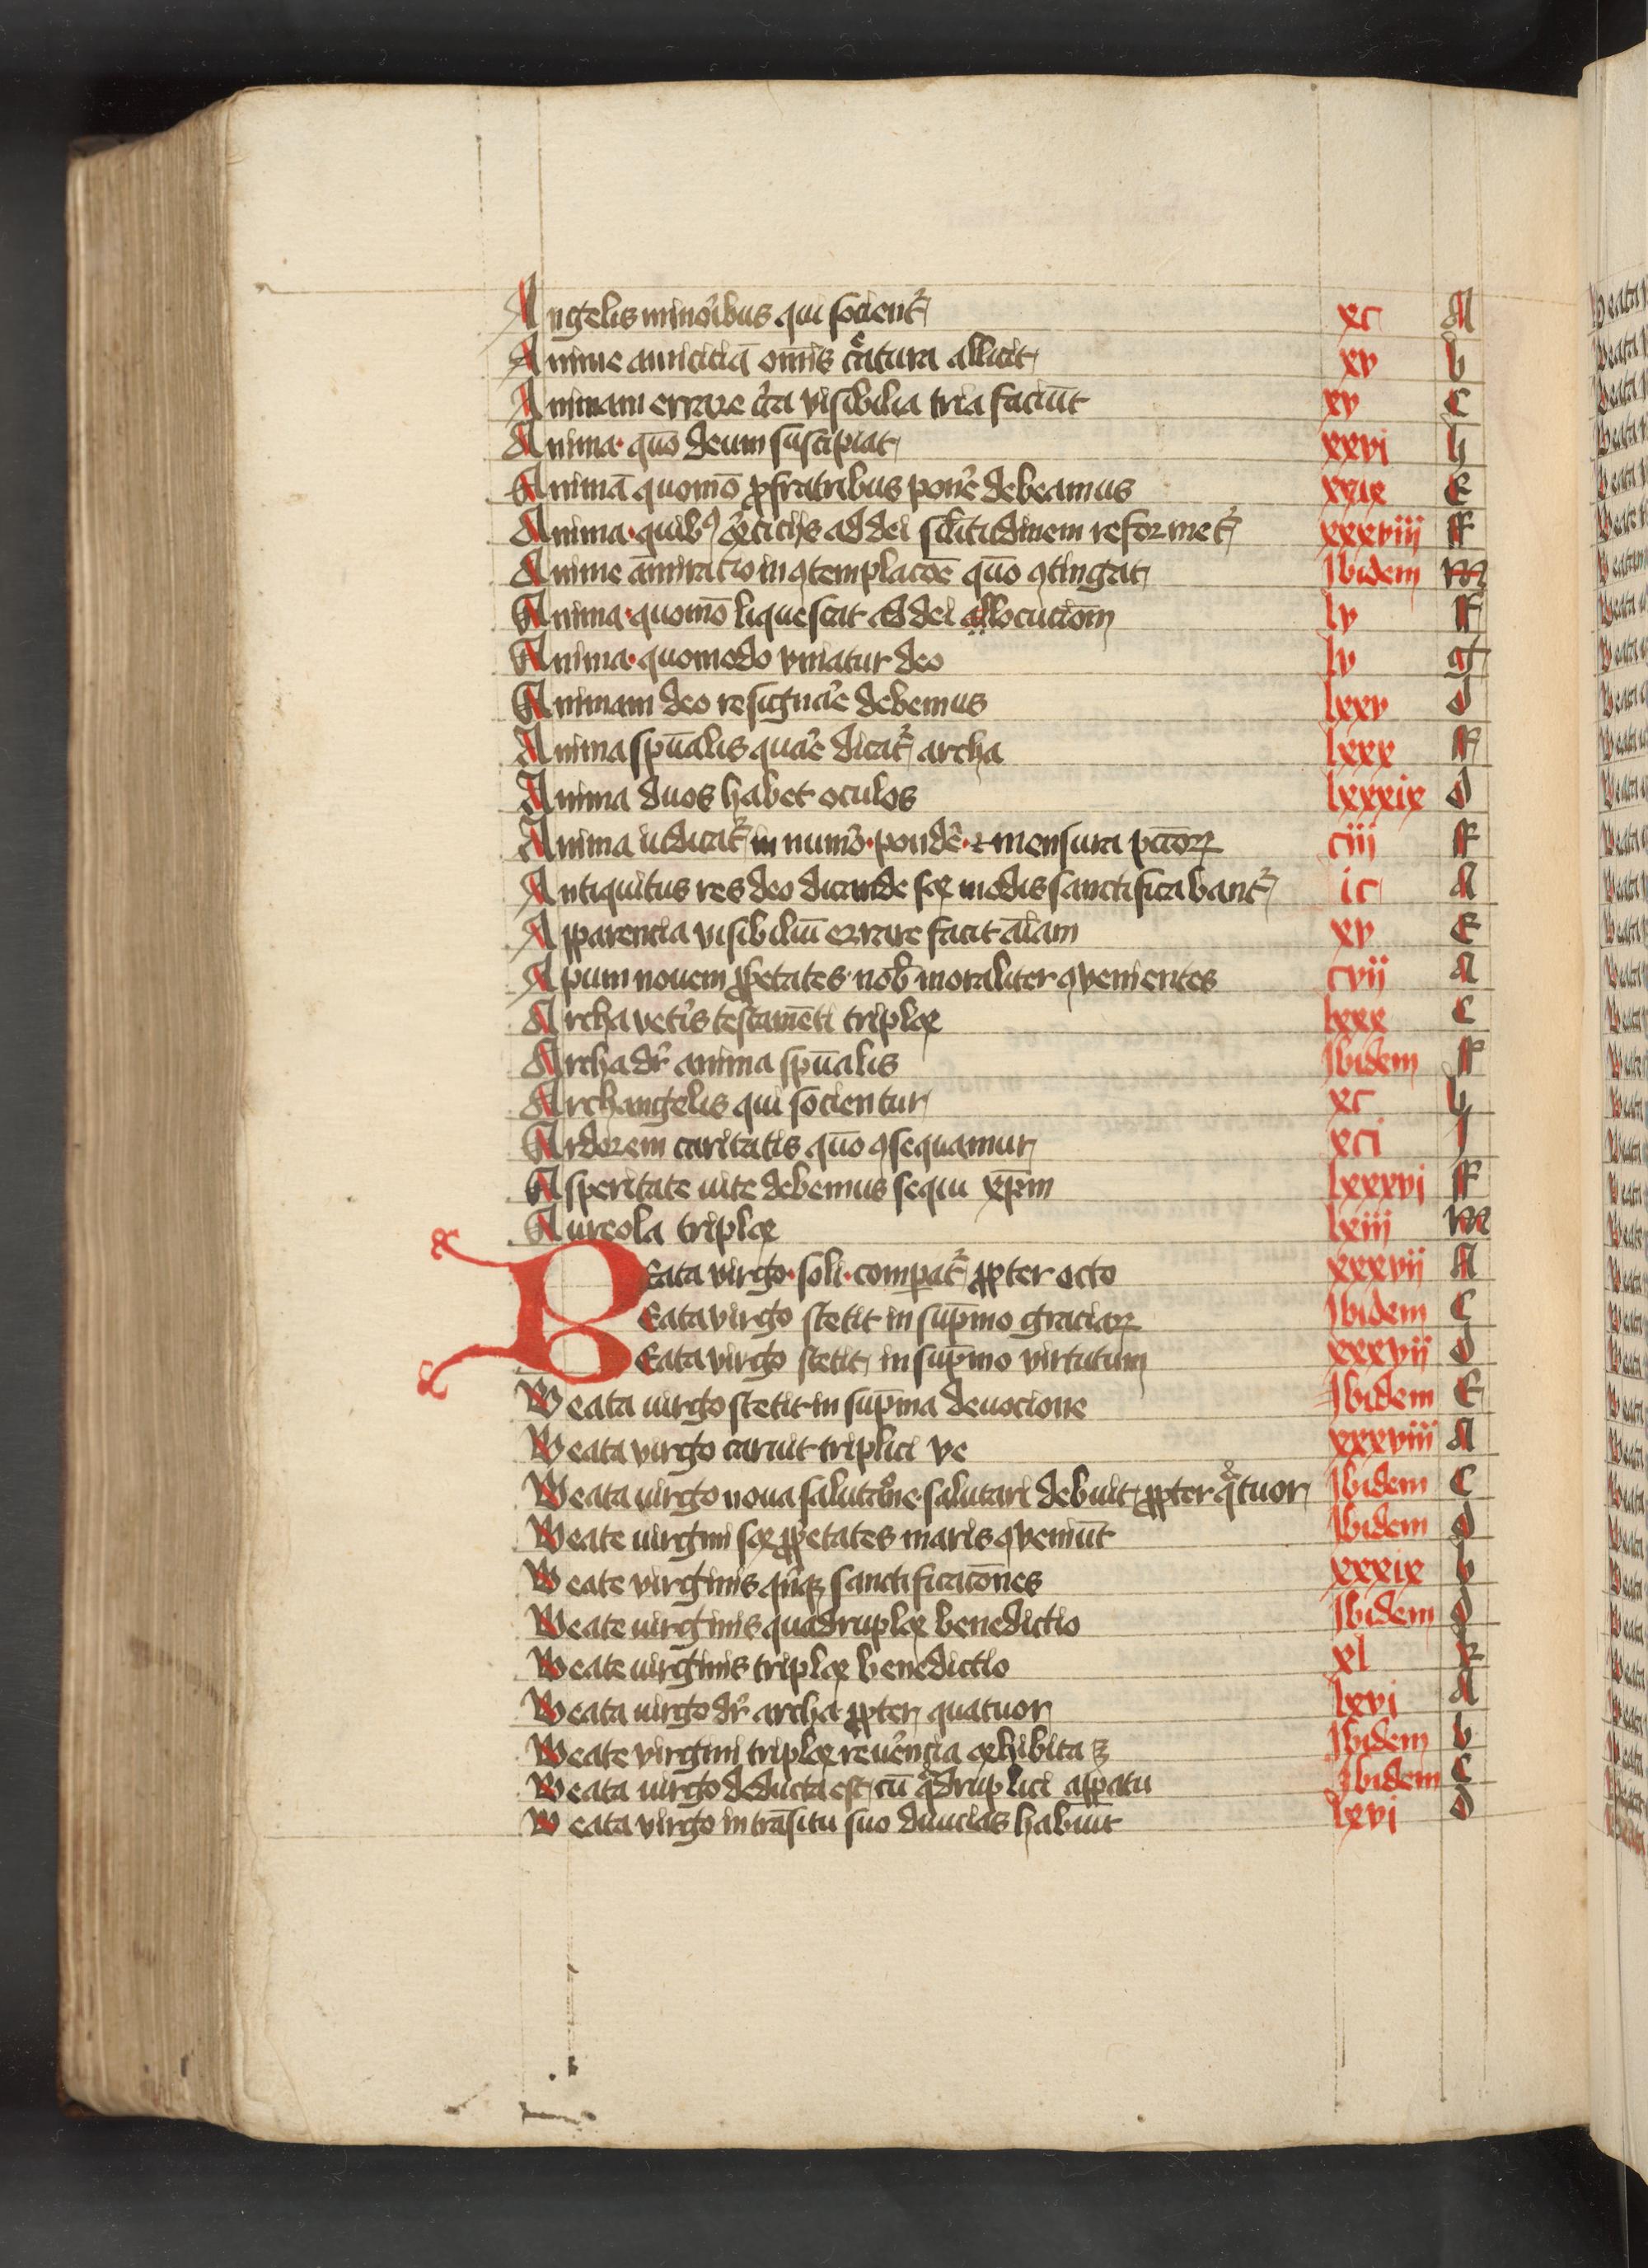 Angelis minoribus qui socient᷑ xc A
Anime amiciciā om̄is cᵉatura allicit xv b
Animam errare cͥca visibilia tria faciūt xv C
Anima · quō deum suscipiat xxvi h
Animā quomō ꝓ fratribus pone᷑ debeamus xxix E
Anima · quibꝰ ad dei reformet᷑ xxxviii ff
Anime āmiratio in ꝯtemplacōe quō ꝯtingat Ibidem m
Anima · quomō liquescat ad dei allocuciōm lv ff
Anima · quomodo vniatur deo lv g
Animam deo resignae᷑ debemus lxxv d
Anima sp̄ualis quae᷑ dicat᷑ archa lxxx ff
Anima duos habet oculos lxxxix d
Anima iudicat᷑ in nume᷑o · ponde᷑e · ⁊ mensura pc̄cōꝝ ciii ff
Antiquitus res deo dicande sex modis sanctificabant᷑ ic A
Apparencia visibiliū errare facit aīam xv E
Apum nouem ꝓpetates nob᷑ moraliter ꝯvenientes cvii A
Archa vete᷑is testamēti triplex lxxx C
Archa dr᷑ anima sp̄ualis Ibidem ff
Archangelis qui socientur xc h
Ardorem caritatis quō ꝯsequamur xci J
Asperitate uite debemus sequi xp̄m lxxxvi ff
Aureola triplex lxiii m
BEata virgo · soli · compat᷑ ꝓpter octo xxxvii A
Beata virgo stetit in sup̄mo graciaꝝ Ibidem C
Beata virgo stetit in sup̄mo virtutum xxxvii d
Beata uirgo stetit in sup̄ma deuocione Ibidem E
Beata virgo caruit triplici ve xxxviii A
Beata uirgo noua salutac̄one salutari debuit ꝓpter qᵃtuor Ibidem C
Beate uirgini sex ꝓpetates maris ꝯveniūt Ibidem d
Beate virginis quīqꝫ sanctificacōnes xxxix b
Beate uirginis quadruplex benedictio Ibidem d
Beate uirginis triplex benedictio xl K
Beata uirgo dr᷑ archa ꝓpter quatuor lxvi A
Beate virgini triplex reue᷑encia exhibita ē Ibidem b
Beata uirgo deducta est cū qᵃdruplici appatu Ibidem C
Beata virgo in trāsitu suo diuicias habuit lxvi d